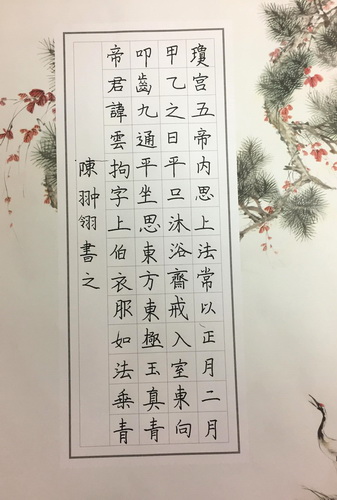 瓊宮五帝内思上法常以正月二月
甲乙之日平旦沐浴齋戒入室東向
叩齒九通平坐思東方東極玉真青
帝君諱雲拘字上伯衣服如法乗青
陳翀翎書之